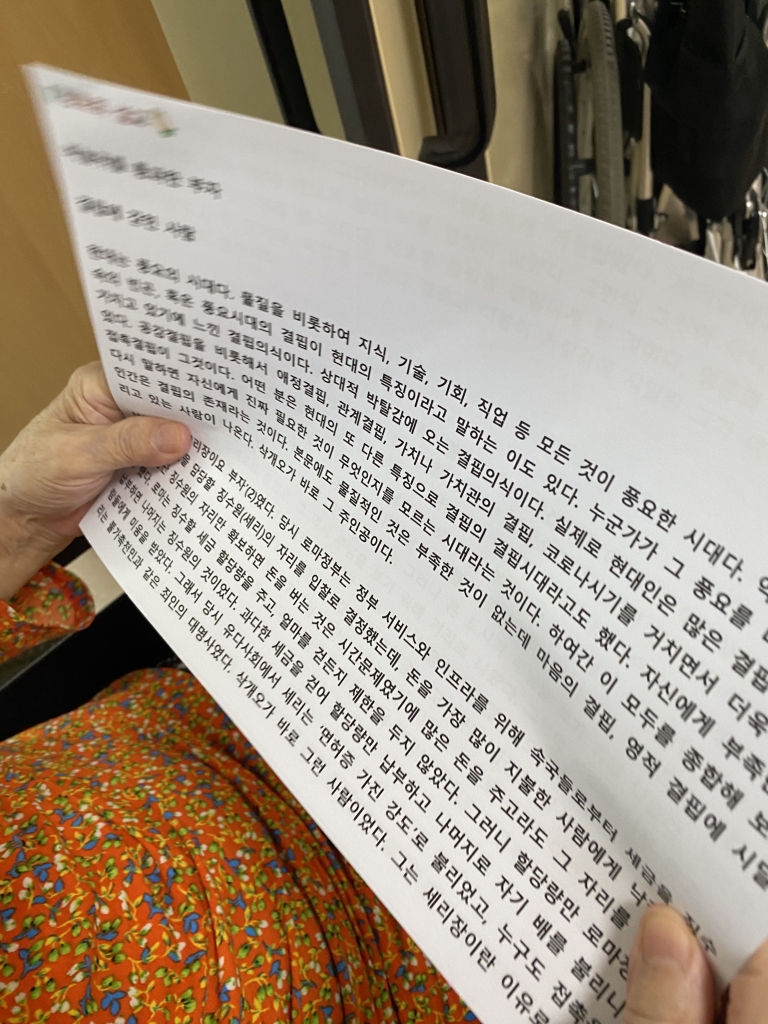 결핍에 갇힌 사람
현대는 풍요의 시대다. 물질을 비롯하여 지식, 기술, 기회, 직업 등 모든 것이 풍요한 시대다.
속의 빈곤, 혹은 풍요시대의 결핍이 현대의 특징이라고 말하는 이도 있다. 누군가가 그 풍요를
가지고 있기에 느낀 결핍의식이다. 상대적 박탈감에 오는 결핍의식이다. 실제로 현대인은 많은 결핍
있다. 공감결핍을 비롯해서 애정결핍, 관계결핍, 가치나 가치관의 결핍 코로나시기를 거치면서 더욱
접촉결핍이 그것이다. 어떤 분은 현대의 또 다른 특징으로 결핍의 결핍시대라고도 했다. 자신에게 부족한
다시 말하면 자신에게 진짜 필요한 것이 무엇인지를 모르는 시대라는 것이다. 하여간 이 모두를 종합해 보
인간은 결핍의 존재라는 것이다. 본문에도 물질적인 것은 부족한 것이 없는데 마음의 결핍, 영적 결핍에 시달
리고 있는 사람이 나온다. 삭개오가 바로 그 주인공이다.
리장이요 부자'(2)였다. 당시 로마정부는 정부 서비스와 인프라를 위해 속국들로부터 세금을
담당할 징수원(세리)의 자리를 입찰로 결정했는데, 돈을 가장 많이 지불한 사람에게
징수원의 자리만 확보하면 돈을 버는 것은 시간문제였기에 많은 돈을 주고라도 그 자리를
로마는 징수할 세금 할당량을 주고, 얼마를 걷든지 제한을 두지 않았다. 그러니 할당량만 로마정
나머지는 징수원의 것이었다. 과다한 세금을 걷어 할당량만 납부하고 나머지로 자기 배를 불리니
람들에게 미움을 받았다. 그래서 당시 유다사회에서 세리는 '면허증 가진 강도'로 불리었고, 누구도 접촉
리는 불가촉천민과 같은 죄인의 대명사였다. 삭개오가 바로 그런 사람이었다. 그는 세리장이란 이유로